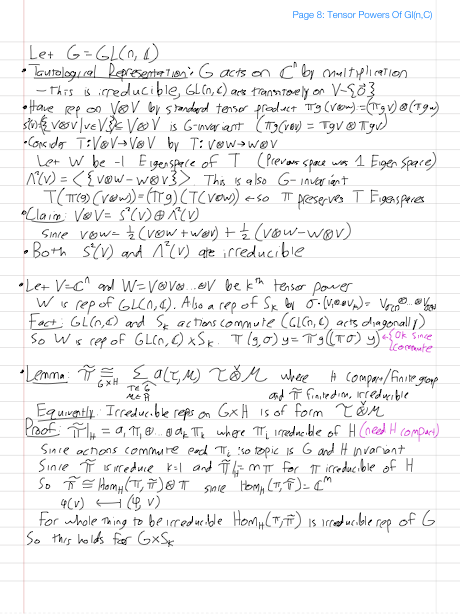 Page 8: Tensor Powers Of Gl(n,C)
Let G = GL(n, ℂ)
• Tautological Representation: G acts on ℂⁿ by multiplication
– This is irreducible, GL(n, ℂ) acts transitively on V-{0⃗}
• Have rep on V⊗V by standard tensor product π_g(v⊗w) = (π_g v) ⊗ (π_g w)
S²(V) = ⟨{v⊗v | v∈V}⟩ ⊆ V⊗V is G-invariant (π_g(v⊗v) = π_g v ⊗ π_g v)
• Consider T: V⊗V → V⊗V by T: v⊗w → w⊗v
Let W be -1 Eigenspace of T (Previous space was 1 Eigenspace)
Λ²(V) = ⟨{v⊗w - w⊗v}⟩ This is also G-invariant
T(π(g)(v⊗w)) = (π(g)(T(v⊗w)) ← so π preserves T Eigenspaces
• Claim: V⊗V = S²(V) ⊕ Λ²(V)
since v⊗w = ½(v⊗w + w⊗v) + ½(v⊗w - w⊗v)
• Both S²(V) and Λ²(V) are irreducible
• Let V = ℂⁿ and W = V⊗V⊗...⊗V be kth tensor power
W is rep of GL(n, ℂ). Also a rep of S_k by σ·(v₁⊗...⊗v_k) =
Fact: GL(n, ℂ) and S_k actions commute (GL(n, ℂ) acts diagonally)
So W is rep of GL(n, ℂ) × S_k. π(g, σ) y = π_g((πσ) y) ← {Ok since
commute
• Lemma: π̃ ≅ Σ a(τ, μ) τ ⊗ μ where H compact/finite group
G×H
and π̃ finite dim, irreducible
Equivalently: Irreducible reps on G×H is of form τ ⊗ μ
Proof: π̃|_H = a₁π₁⊕...⊕a_kπ_k where π_i irreducible of H (need H compact)
Since actions commute each π_i isotopic is G and H invariant
Since π̃ is irreduce k=1 and π̃|_H = mπ for π irreducible of H
So π̃ ≅ Hom_H(π, π̃) ⊗ π since Hom_H(π, π̃) = ℂᵐ
φ(v) ↔ (φ, v)
For whole thing to be irreducible Hom_H(π, π̃) is irreducible rep of G
So this holds for G×S_k